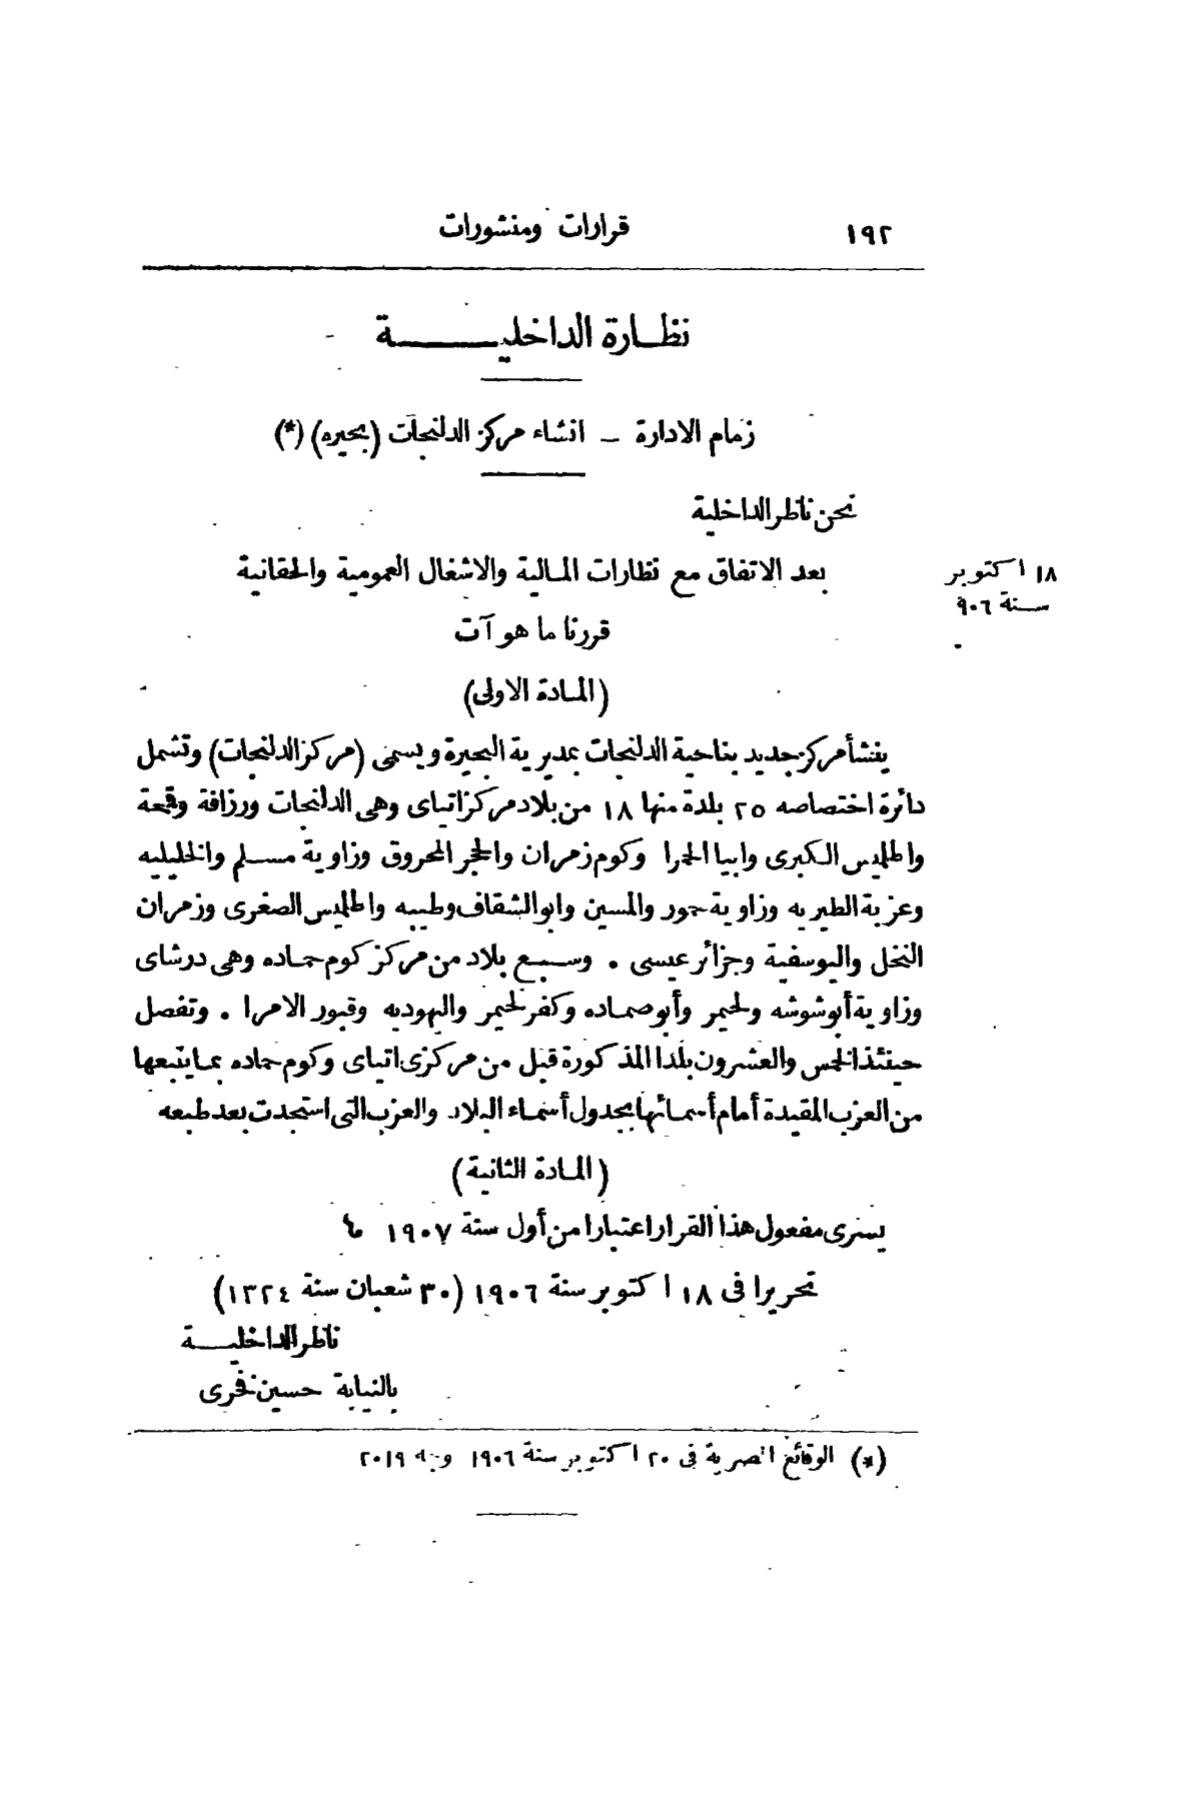 ١٩٢
قرارات ومنشورات
نظارة الداخلية
زمام الادارة — انشاء مركز الدلنجات (بحيره) (*)
نحن ناظر الداخلية
١٨ اكتوبر
سنة ٩٠٦
بعد الاتفاق مع نظارات المالية والاشغال العمومية والحقانية
قررنا ما هو آت
(المادة الاولى)
ينشأ مركز جديد بناحية الدلنجات بمديرية البحيرة ويسمى (مركز الدلنجات) وتشمل
دائرة اختصاصه ٢٥ بلدة منها ١٨ من بلاد مركز اتياى وهى الدلنجات ورزافة وقمحة
والطلميس الكبرى وابيا الحمرا وكوم زمران والحجر المحروق وزاوية مسلم والخليليه
وعزبة الطيريه وزاوية حمور والمسين وابو الشقاف وطيبه والطلميس الصغرى وزمران
النخل واليوسفية وجزائر عيسى . وسبع بلاد من مركز كوم حماده وهى درشاى
وزاوية أبو شوشه ولحيمر وأبو صماده وكفر لحيمر واليهوديه وقبور الامرا . وتفصل
حينئذ الخمس والعشرون بلدا المذكورة قبل من مركزى اتياى وكوم حماده بما يتبعها
من العزب المقيدة أمام أسمائها بجدول أسماء البلاد والعزب التى استجدت بعد طبعه
(المادة الثانية)
يسرى مفعول هذا القرار اعتبارا من أول سنة ١٩٠٧
تحريرا فى ١٨ اكتوبر سنة ١٩٠٦ (٣٠ شعبان سنة ١٣٢٤)
ناظر الداخلية
بالنيابة حسين فخرى
(*) الوقائع المصرية فى ٢٠ اكتوبر سنة ١٩٠٦ وجه ٢٠١٩